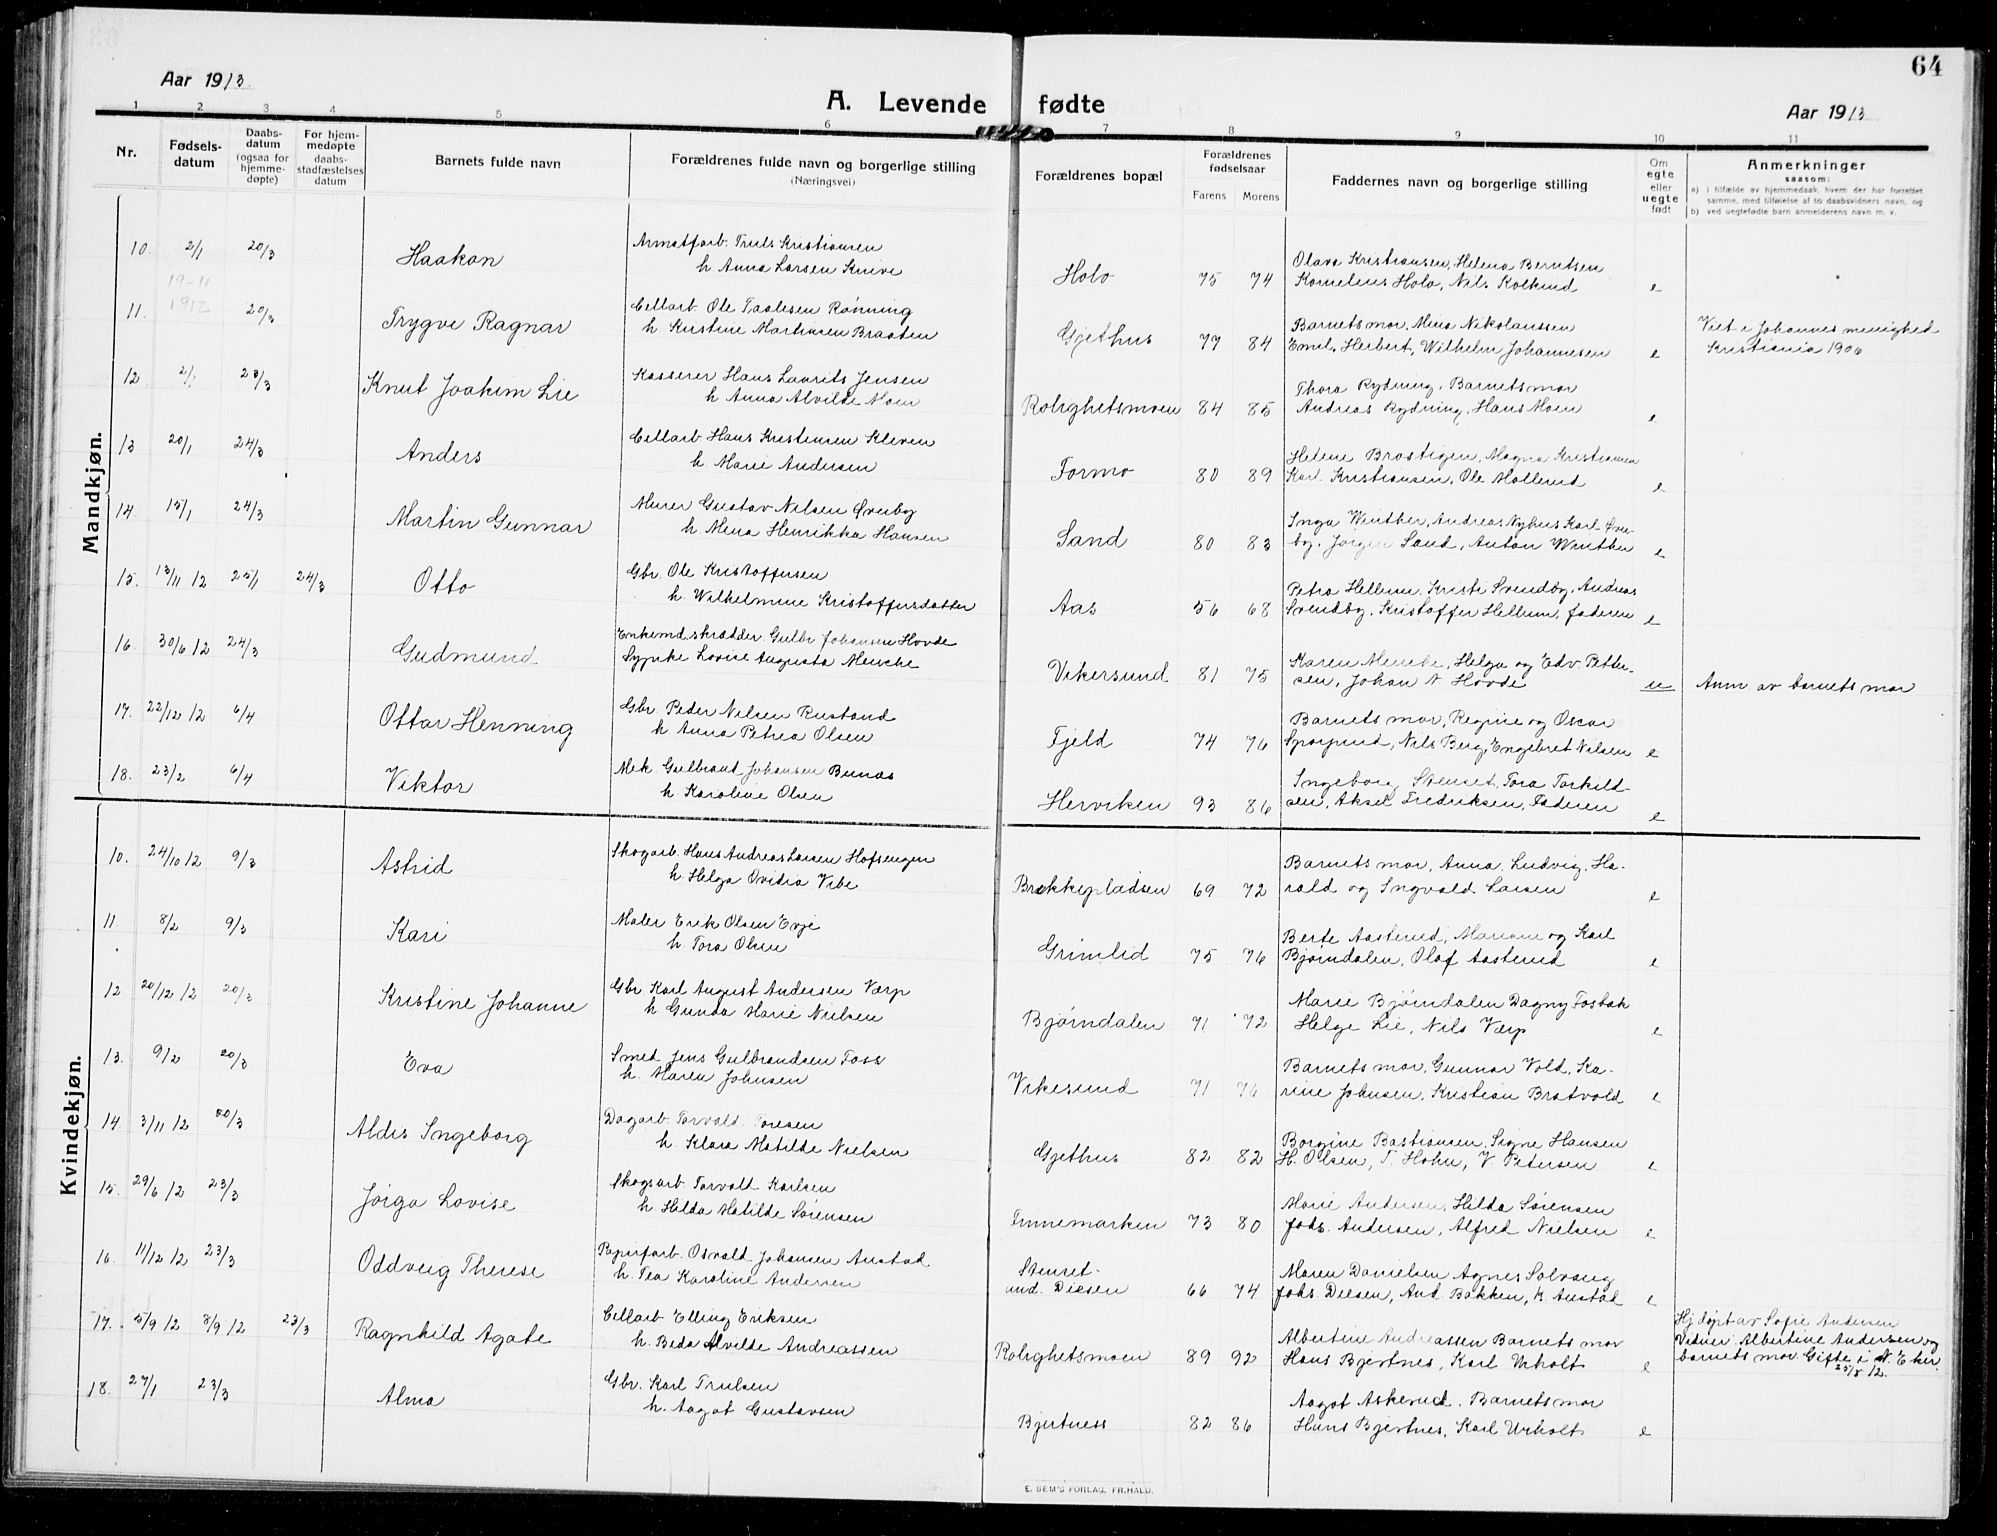 64
Aar 1913.
A. Levende fødte
Aar 1913
1 2 3 4 5 6 7 8 9 10 11
Nr.
Fødsels-
datum
Daabs-
datum
(ogsaa for
hjemme-
døpte)
For hjem-
medøpte
daabs-
stadfæstelses
datum
Barnets fulde navn
Forældrenes fulde navn og borgerlige stilling
(Næringsvei)
Forældrenes bopæl
Forældrenes
fødselsaar
Farens Morens
Faddernes navn og borgerlige stilling
Om
egte
eller
uegte
født
Anmerkninger
saasom:
a) i tilfælde av hjemmedaab, hvem der har forrettet
samme, med tilføielse af to daabsvidners navn, og
b) ved uegtefødte barn anmelderens navn m. v.
Mandkjøn.
10. 2/1 20/3 Haakon Truls Kristiansen Holo 75 74 Olava Kristiansen, Helena Berntsen e
h Anna Larsen Knive Kornelius Holo, Nils Kolkind
11. 19-11 1912 20/3 Trygve Ragnar Cellarb. Ole Paulesen Rønning Gjethus 77 84 Barnets mor, Mina Nikolaussen e Viet i Johannes menighed
h Kristine Marthisen Braaten Emil, Herbert, Wilhelm Johannesen Kristiania 1906
12. 2/1 23/3 Knut Joakim Lie Kasserer Hans Laurits Jensen Rolighetsmoen 84 85 Thora Rydning, Barnets mor e
h Anna Alvilde Moen Andreas Rydning, Hans Moen
13 20/1 24/3 Anders Cellarb Hans Kristensen Kleven Formo 80 89 Helene Brostigen, Magna Kristiansen e
h Marie Andersen Karl Kristiansen, Ole Mollerud
14. 15/1 24/3 Martin Gunnar Murer Gustav Nilsen Øverby Sand 80 83 Inga Winther, Andreas Nyhus Karl Øver- e
h Mina Henrikka Hansen by, Jørgen Sand, Anton Winther
15. 13/11 12 25/1 24/3 Otto Gbr. Ole Kristoffersen Aas 56 68 Petra Hellum, Kristi Svendby, Andreas e
h. Wilhelmine Kristoffersdatter Svendby, Kristoffer Hellum, faderen
16. 30/6 12 24/3 Gudmund Enkemd. skrædder Gulbr Johansen Hovde Vikersund 81 75 Karen Mencke, Helga og Edv. Petter- u Anm av barnets mor
Sypike Lovise Augusta Mencke sen, Johan N Hovde
17. 22/12 12 6/4 Ottar Henning Gbr Peder Nilsen Rustand Fjeld 74 76 Barnets mor, Regine og Oscar e
h Anna Petrea Olsen Sporpind, Nils Berg, Engebret Nilsen
18. 23/2 6/4 Viktor Mek. Gulbrand Johansen Bunæs Herviken 93 86 Ingeborg Stenset, Tora Torkild- e
h Karoline Olsen sen, Aksel Fredriksen, Faderen
Kvindekjøn.
10. 24/10 12 9/3 Astrid Skogarb. Hans Andreas Larsen Hofsengen Brekkepladsen 69 72 Barnets mor, Anna, Ludvig, Ha- e
h. Helga Ovidia Vibe rald og Ingvald Larsen
11. 8/2 9/3 Kari Maler Erik Olsen Evje Grimelid 75 76 Berte Aasterud, Mariane og Karl e
h. Tora Olsen Bjørndalen, Olaf Aasterud
12 20/12 12 20/3 Kristine Johanne Gbr Karl August Andersen Værp Bjørndalen 71 72 Marie Bjørndalen Dagny Fosbak e
h Gunda Marie Nielsen Helge Lie, Nils Værp
13. 9/2 20/3 Eva Smed Jens Gulbrandsen Foss Vikesund 71 76 Barnets mor, Gunnar Vold, Ka- e
h. Maren Johnsen rine Johnsen, Kristian Bratvold
14. 3/11 12 20/3 Aldis Ingeborg Dagarb. Torvald Toresen Gjethus 82 82 Borgine Bastiansen, Signe Hansen e
h. Klara Matilde Nielsen H. Olsen, T. Hohn, V. Petersen
15. 29/6 12 23/3 Jørga Lovise Skogsarb. Torvald Karlsen Finnemarken 73 80 Marie Andersen, Hilda Sørensen e
h Hilda Matilde Sørensen Johs. Andersen, Alfred Nielsen
16. 11/12 12 23/3 Oddveig Therese Papirfarb. Osvald Johansen Austad Stenset- 66 74 Maren Danielsen Agnes Solvang e
h. Tea Karoline Andersen und. Diesen Johs. Diesen, And. Bakken, K. Austad
17. 5/9 12 8/9 12 23/3 Ragnhild Agate Cellarb Elling Eriksen Rolighetsmoen 89 92 Albertine Andreassen Barnets mor e Hj døpt av Sofie Andersen
h. Beda Alvilde Andreassen Hans Bjertnes, Karl Urholt Vidner Albertine Andersen og
barnets mor Gifte i N. Eker
25/8 12.
18. 27/1 23/3 Alma Gbr. Karl Trulsen Bjertness 82 86 Aagot Askerud, Barnets mor e
h. Aagot Gustavsen Hans Bjertnes, Karl Urholt
E. SEM'S FORLAG, FR.HALD.